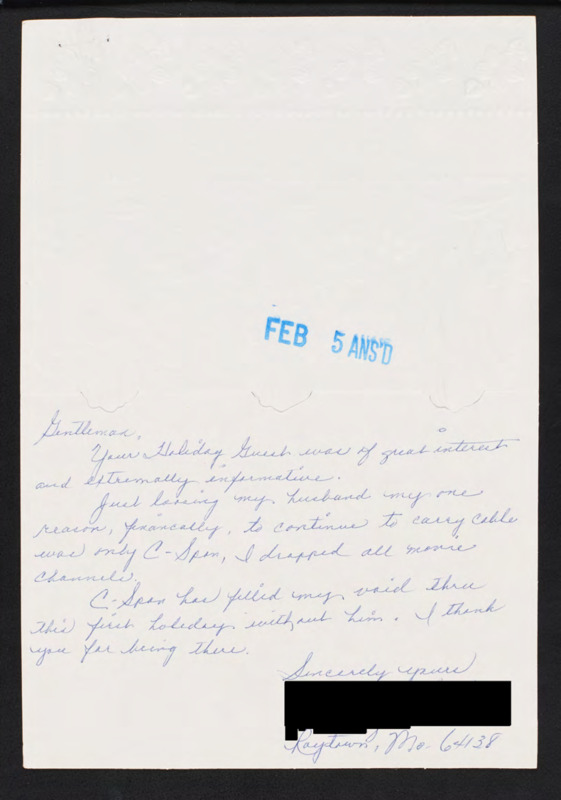 FEB 5 ANS'D
Gentleman,
Your Holiday Guest was of great interest
and extremally informative.
Just loosing my husband my one
reason, financally, to continue to carry cable
was only C-Span, I dropped all movie
channels.
C-Span has filled my void thru
this first holiday without him. I thank
you for being there.
Sincerely yours
Raytown, Mo. 64138